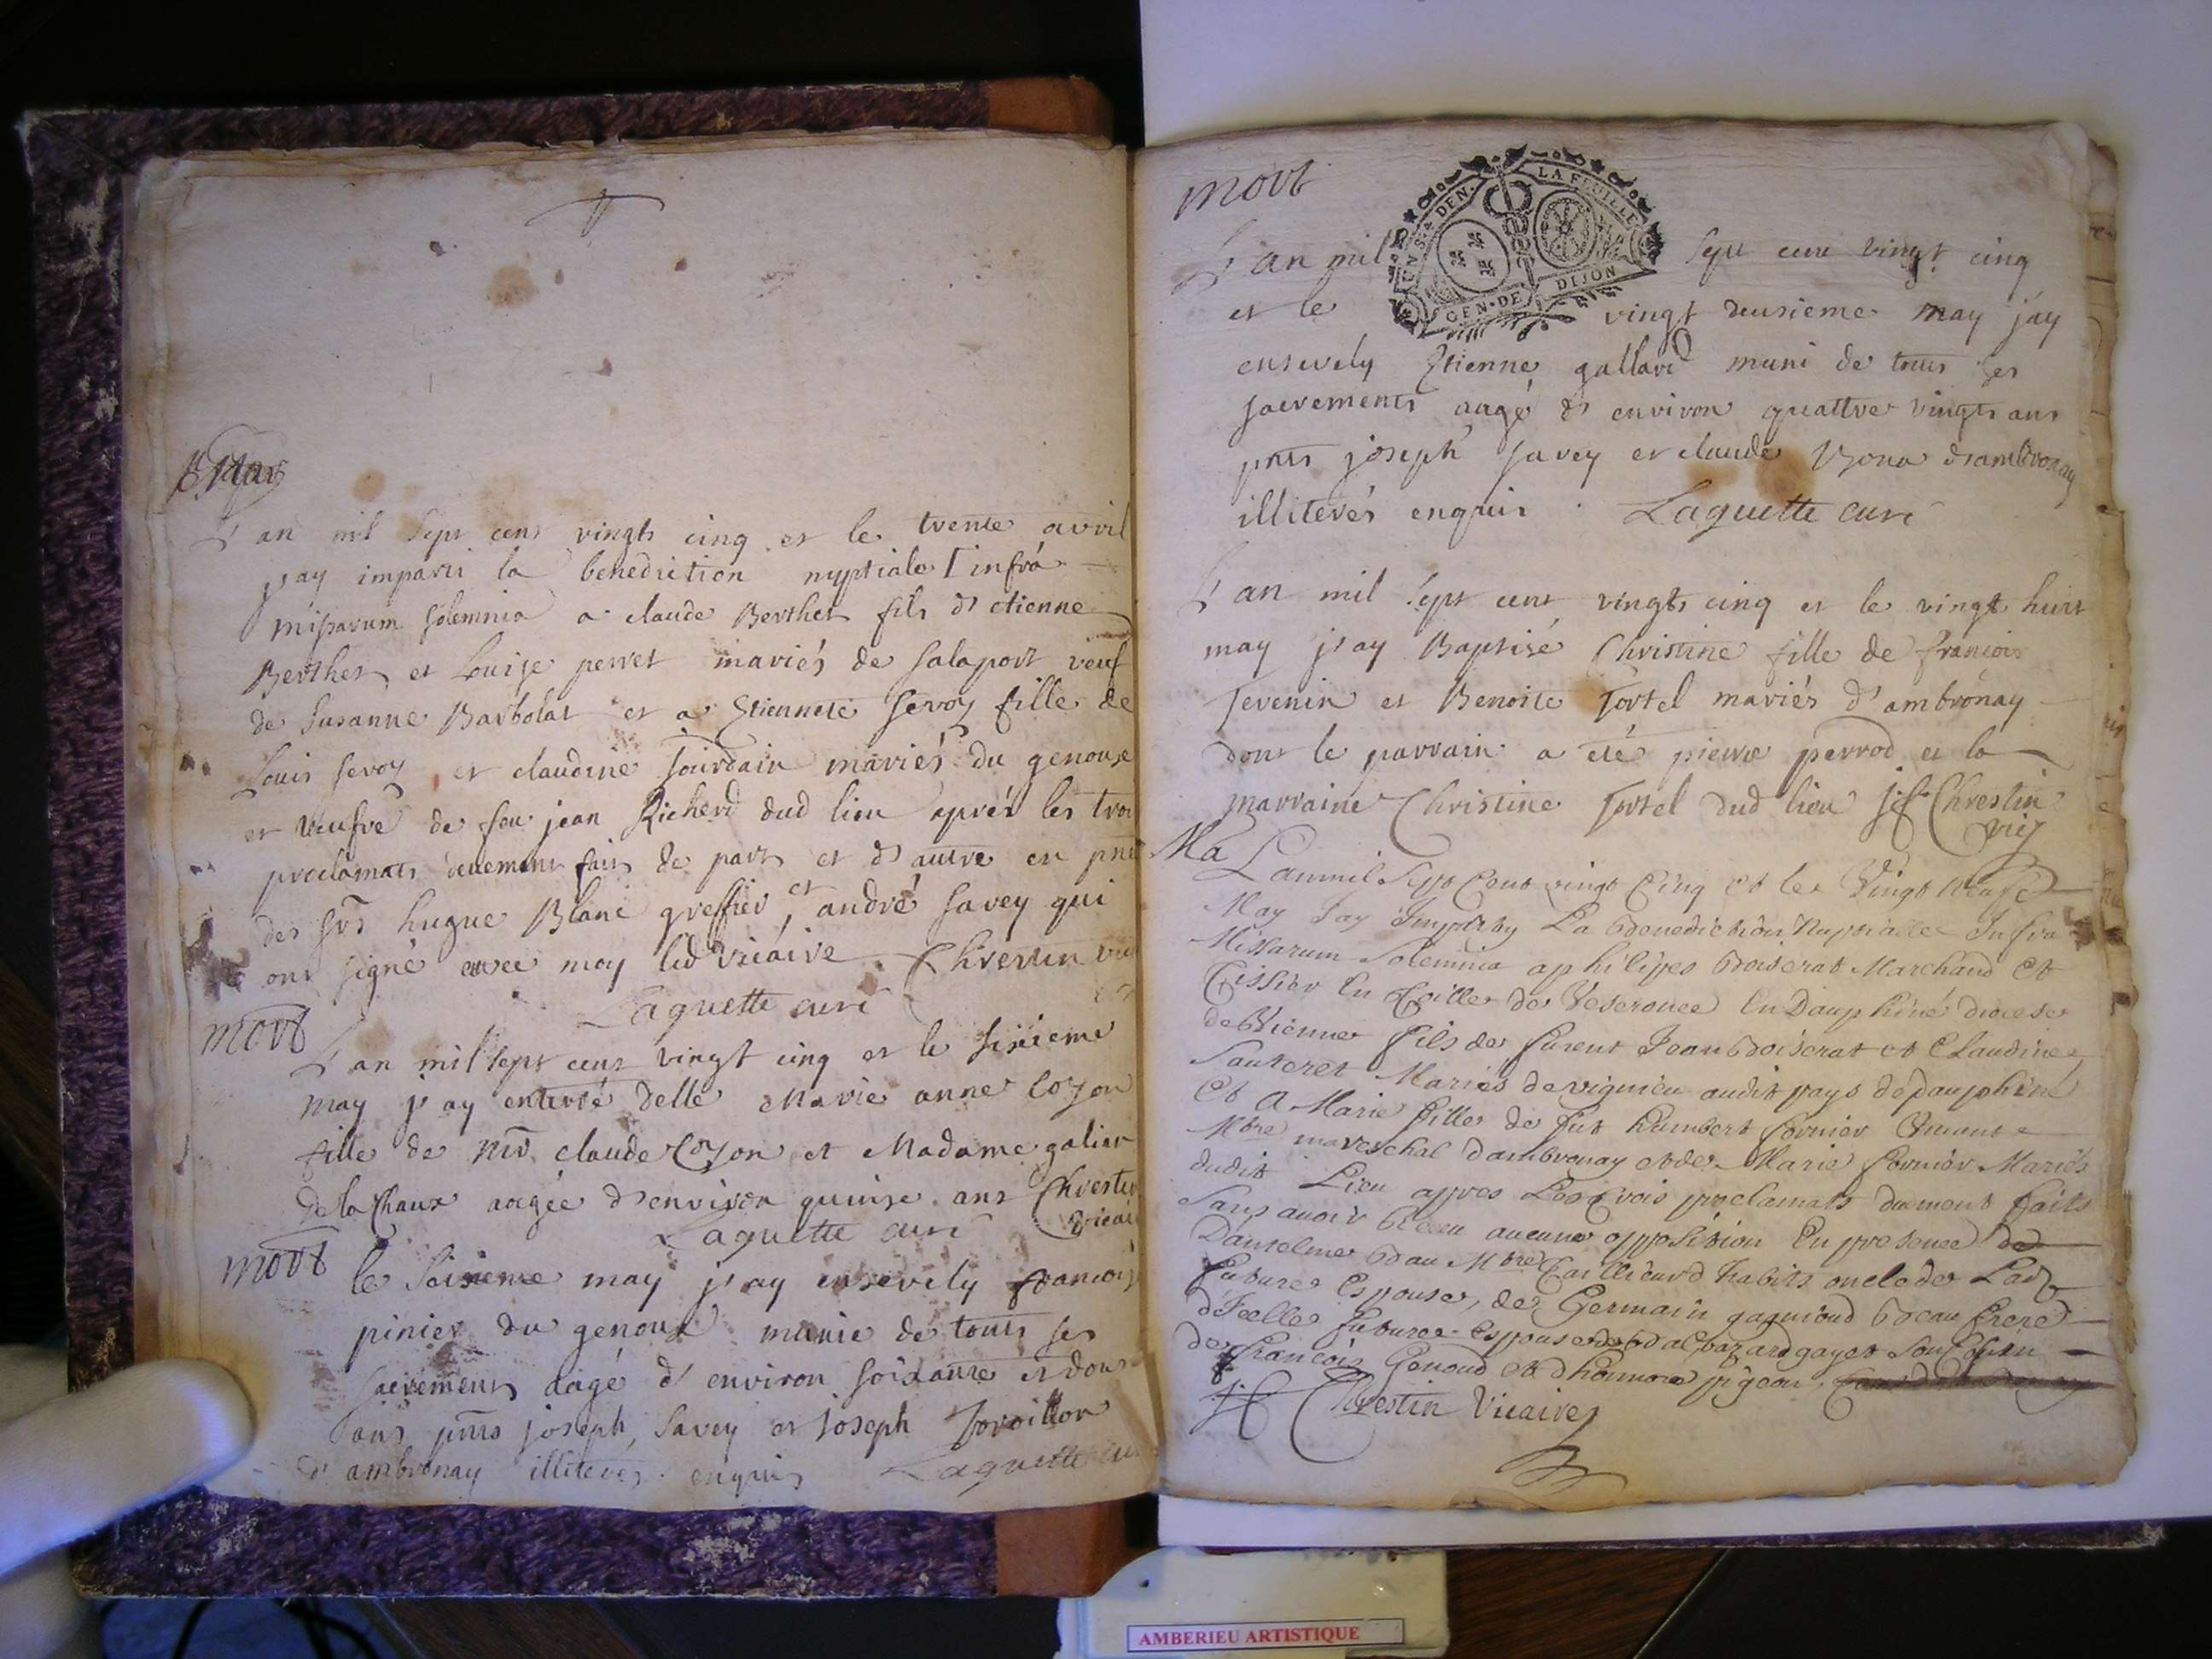 Mar
L'an mil sept cent vingts cinq et le trente avril
j'ay imparti la benediction nuptiale infrà
missarum solemnia a claude Berthet fils d'etienne
Berthet et Louise perret mariés de salaport veuf
de susanne Barbolat et a Etiennete seroy fille de
Louis seroy et claudine jourdain mariés du genoux
et veufve de feu jean Richerd dud lieu après les troi
proclamats deuement fait de part et d'autre en pnce
des srs hugue Blanc greffier et andré savey qui
ont signé avec moy led vicaire Chrestin vic
Laguette curé
mort
L'an mil sept cent vingt cinq et le sixieme
may j'ay enterré delle Marie anne Cozon
fille de mr claude Cozon et Madame galien
de la Chaux aagée d'environ quinse ans Chrestin
Laguette curé vicai
mort
le seizieme may j'ay ensevely francois
pinier du genoux munie de touts ses
sacrements aagé d'environ soixante et dou
ans pnts joseph savey et joseph
d'ambronay illiterés enquis Laguette cu
mort
LA FEUILLE
DEN.
GEN. DE DIJON
L'an mil sept cent vingt cinq
et le vingt deusieme may j'ay
ensevely Etienne gallard muni de touts ses
sacrements aagé d'environ quattre vingts ans
pnts joseph savey et claude d'ambronay
illiterés enquis. Laguette curé
L'an mil sept cent vingts cinq et le vingt huit
may j'ay Baptisé Christine fille de francois
Tevenin et Benoite Tortel mariés d'ambronay
dont le parrain a eté pierre perrod et la
marraine Christine Tortel dud lieu jf Chrestin
vic
Ma
L'anmil Sept Cent vingt Cinq et le Vingt Neufe
May Jay Imparty La Benediction Nuptialle Infra
Missarum Solemnia a philippes Boiserat Marchand et
Tissier En Toille de Veseronce En Dauphiné diocese
de Vienne fils de furent Jean Boiserat et Claudine
Sauteret Mariés de vignieu audit pays de dauphiné
Et A Marie fille de fut humbert fornier Vivant
Mbre mareschal d'ambronay et de Marie fornier Mariés
dudit Lieu appres Les trois proclamats dument faits
Sans avoir Receu aucune opposition En presence de
D'antelme Mbre habits oncle de Lad
future Espouse, de Germain gagnioud Beau frere
d'Icelle future espouse de Balthazard gayet Son Cousin
de francois Genoud et d'honnore pigeon
jf Chrestin Vicaire
AMBERIEU ARTISTIQUE